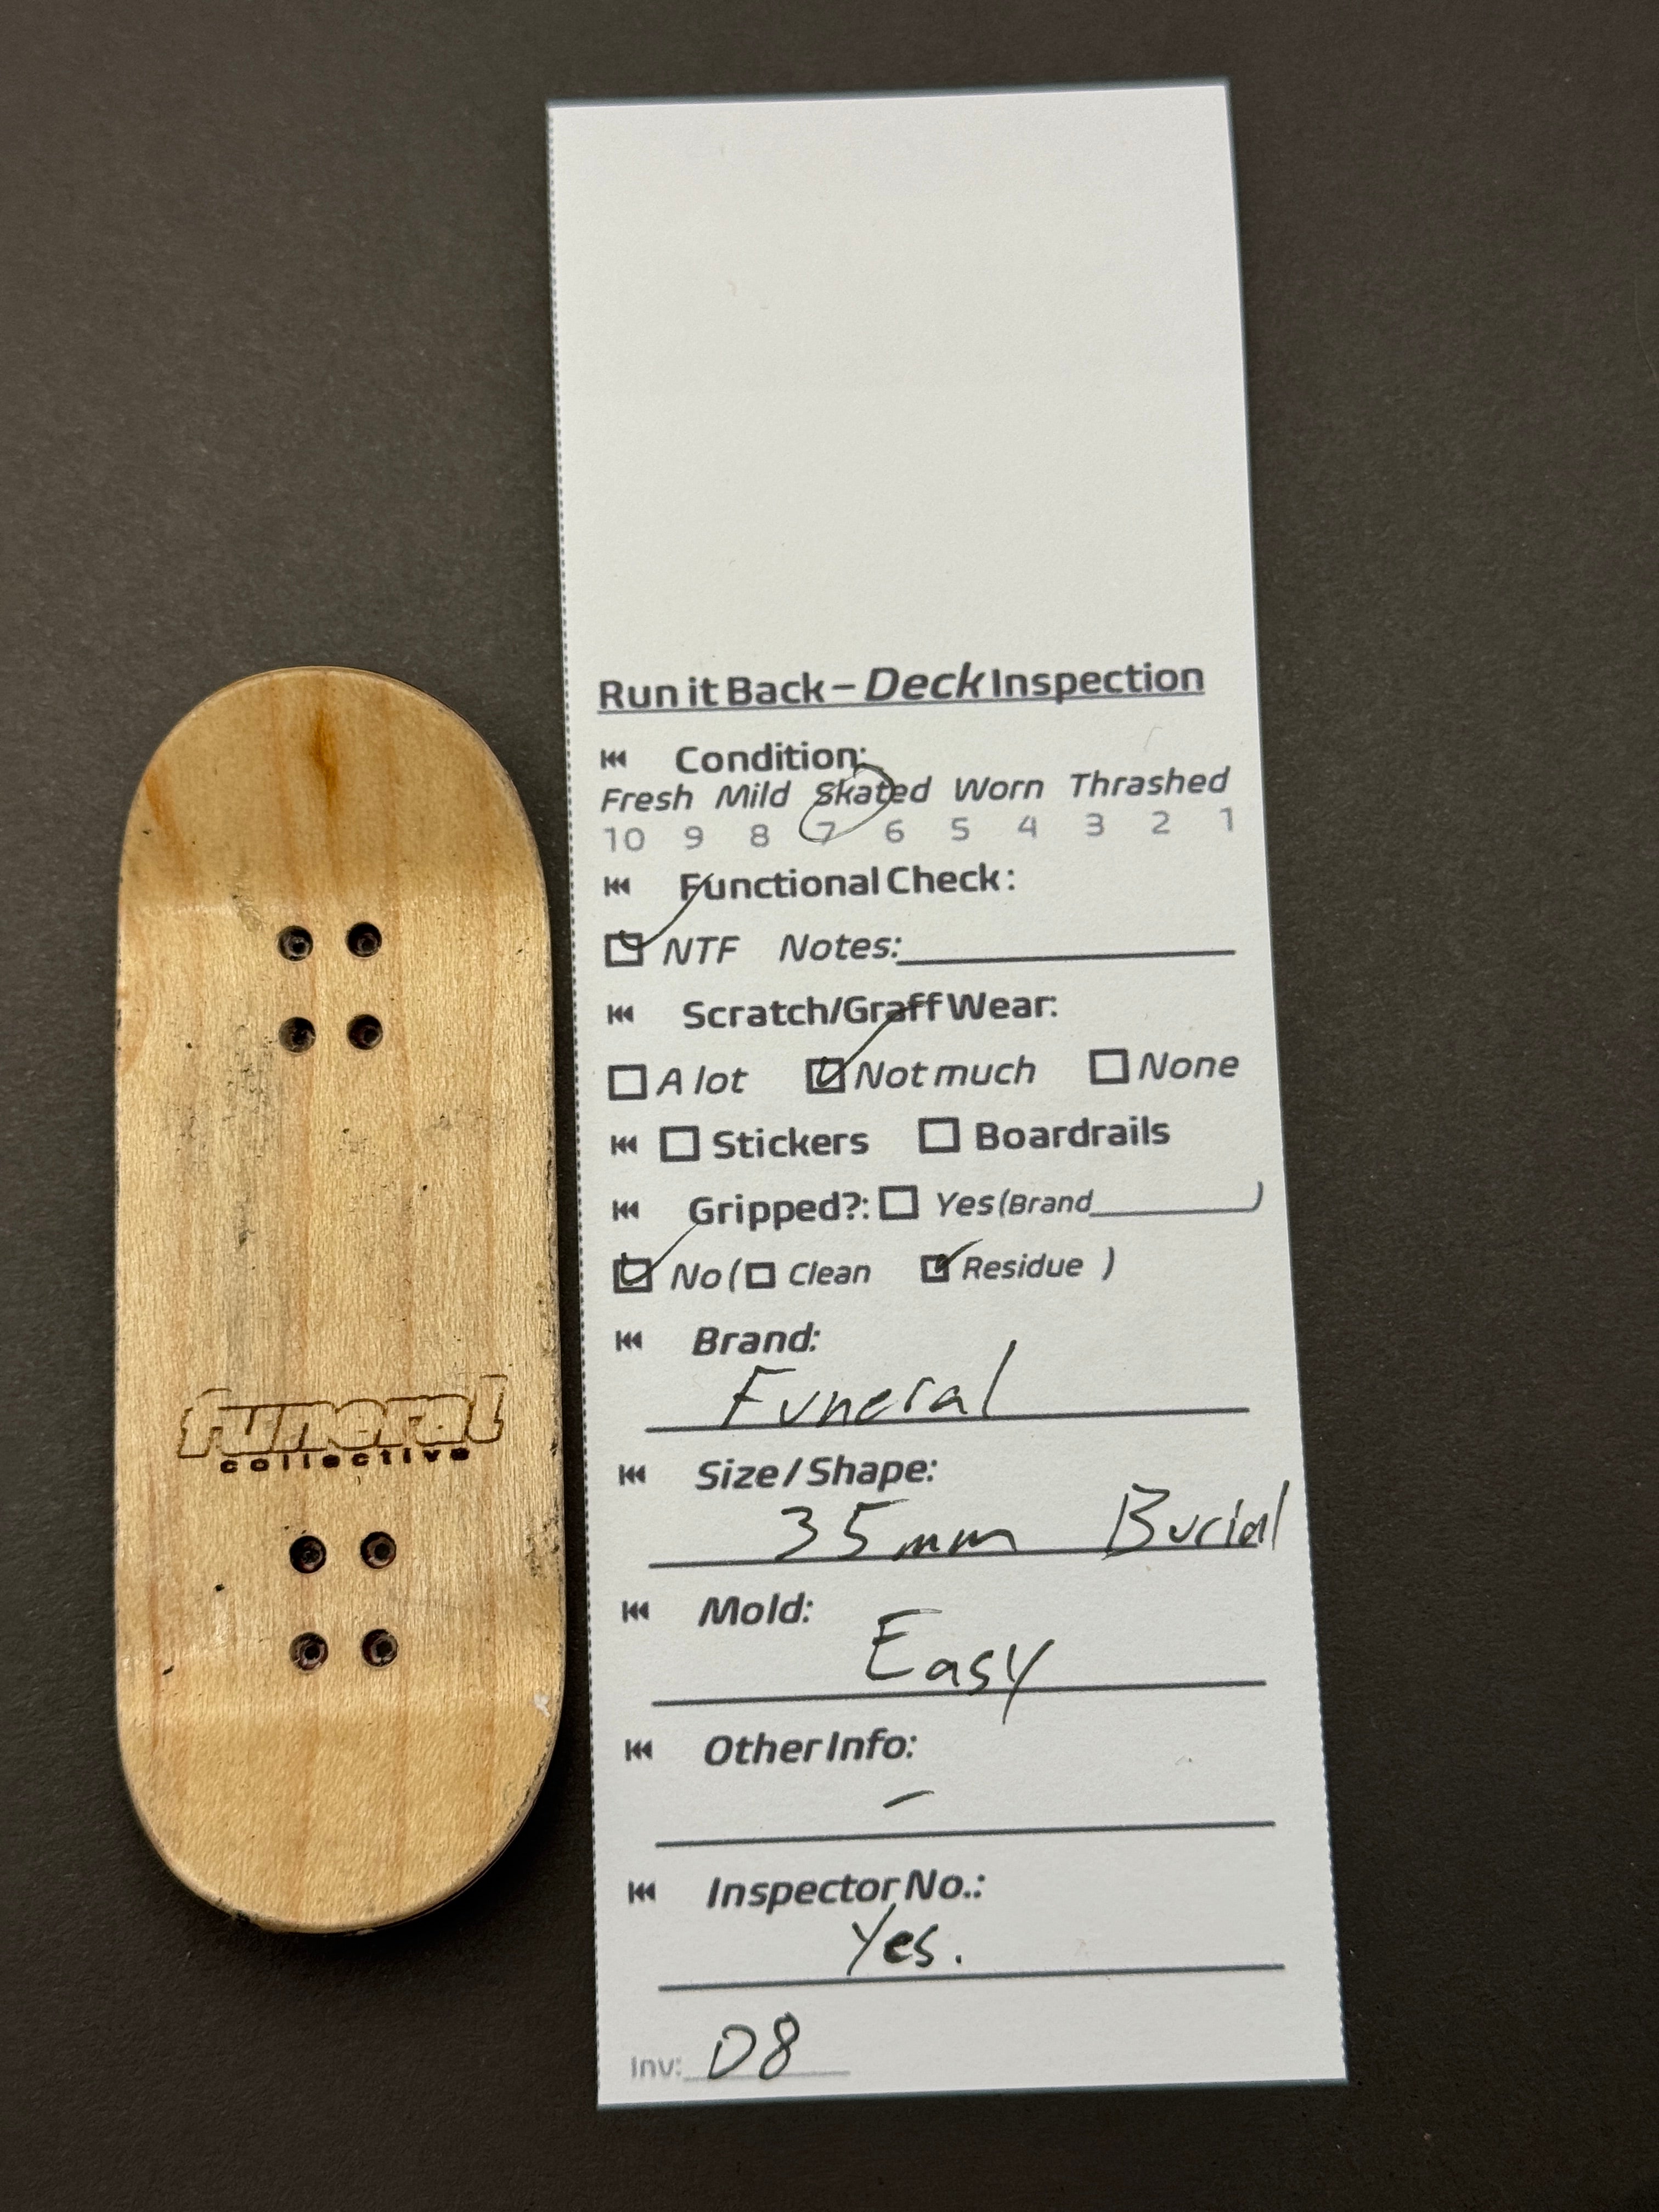 Run it Back – Deck Inspection
Condition:
Fresh Mild Skated Worn Thrashed
10 9 8 7 6 5 4 3 2 1
Functional Check:
NTF Notes:
Scratch/Graff Wear:
A lot Not much None
Stickers Boardrails
Gripped?: Yes (Brand )
No ( Clean Residue )
Brand:
Funeral
Size / Shape:
35mm Burial
Mold:
Easy
Other Info:
–
Inspector No.:
Yes.
Inv: D8
funeral
collective